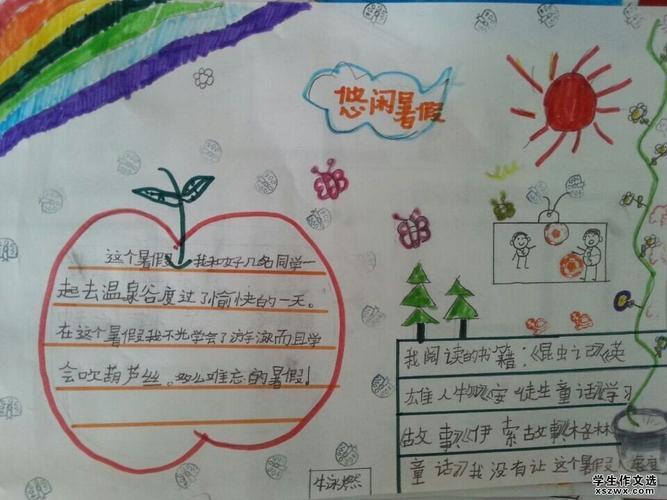 悠闲暑假
这个暑假，我和好几名同学一
起去温泉谷度过了愉快的一天。
在这个暑假我不光学会了游泳而且学
会吹葫芦丝。多么难忘的暑假！
我阅读的书籍：《昆虫记》《英
雄人物》《安徒生童话》《学习
故事》《伊索故事》《格林
童话》我没有让这个暑假
学生作文选
xszwx.com